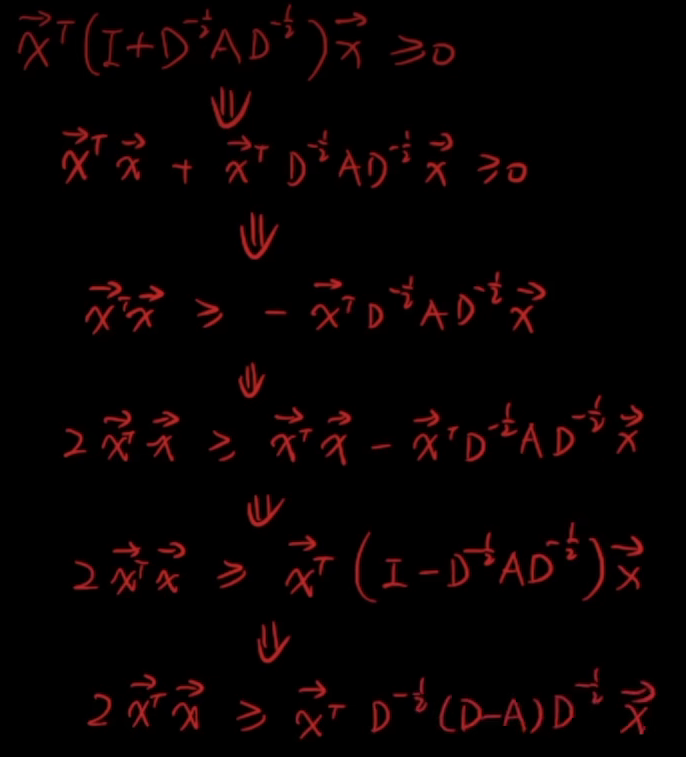 $\vec{x}^T (I + D^{-\frac{1}{2}} A D^{-\frac{1}{2}}) \vec{x} \geq 0$
⇓
$\vec{x}^T \vec{x} + \vec{x}^T D^{-\frac{1}{2}} A D^{-\frac{1}{2}} \vec{x} \geq 0$
⇓
$\vec{x}^T \vec{x} \geq - \vec{x}^T D^{-\frac{1}{2}} A D^{-\frac{1}{2}} \vec{x}$
⇓
$2 \vec{x}^T \vec{x} \geq \vec{x}^T \vec{x} - \vec{x}^T D^{-\frac{1}{2}} A D^{-\frac{1}{2}} \vec{x}$
⇓
$2 \vec{x}^T \vec{x} \geq \vec{x}^T (I - D^{-\frac{1}{2}} A D^{-\frac{1}{2}}) \vec{x}$
⇓
$2 \vec{x}^T \vec{x} \geq \vec{x}^T D^{-\frac{1}{2}} (D - A) D^{-\frac{1}{2}} \vec{x}$